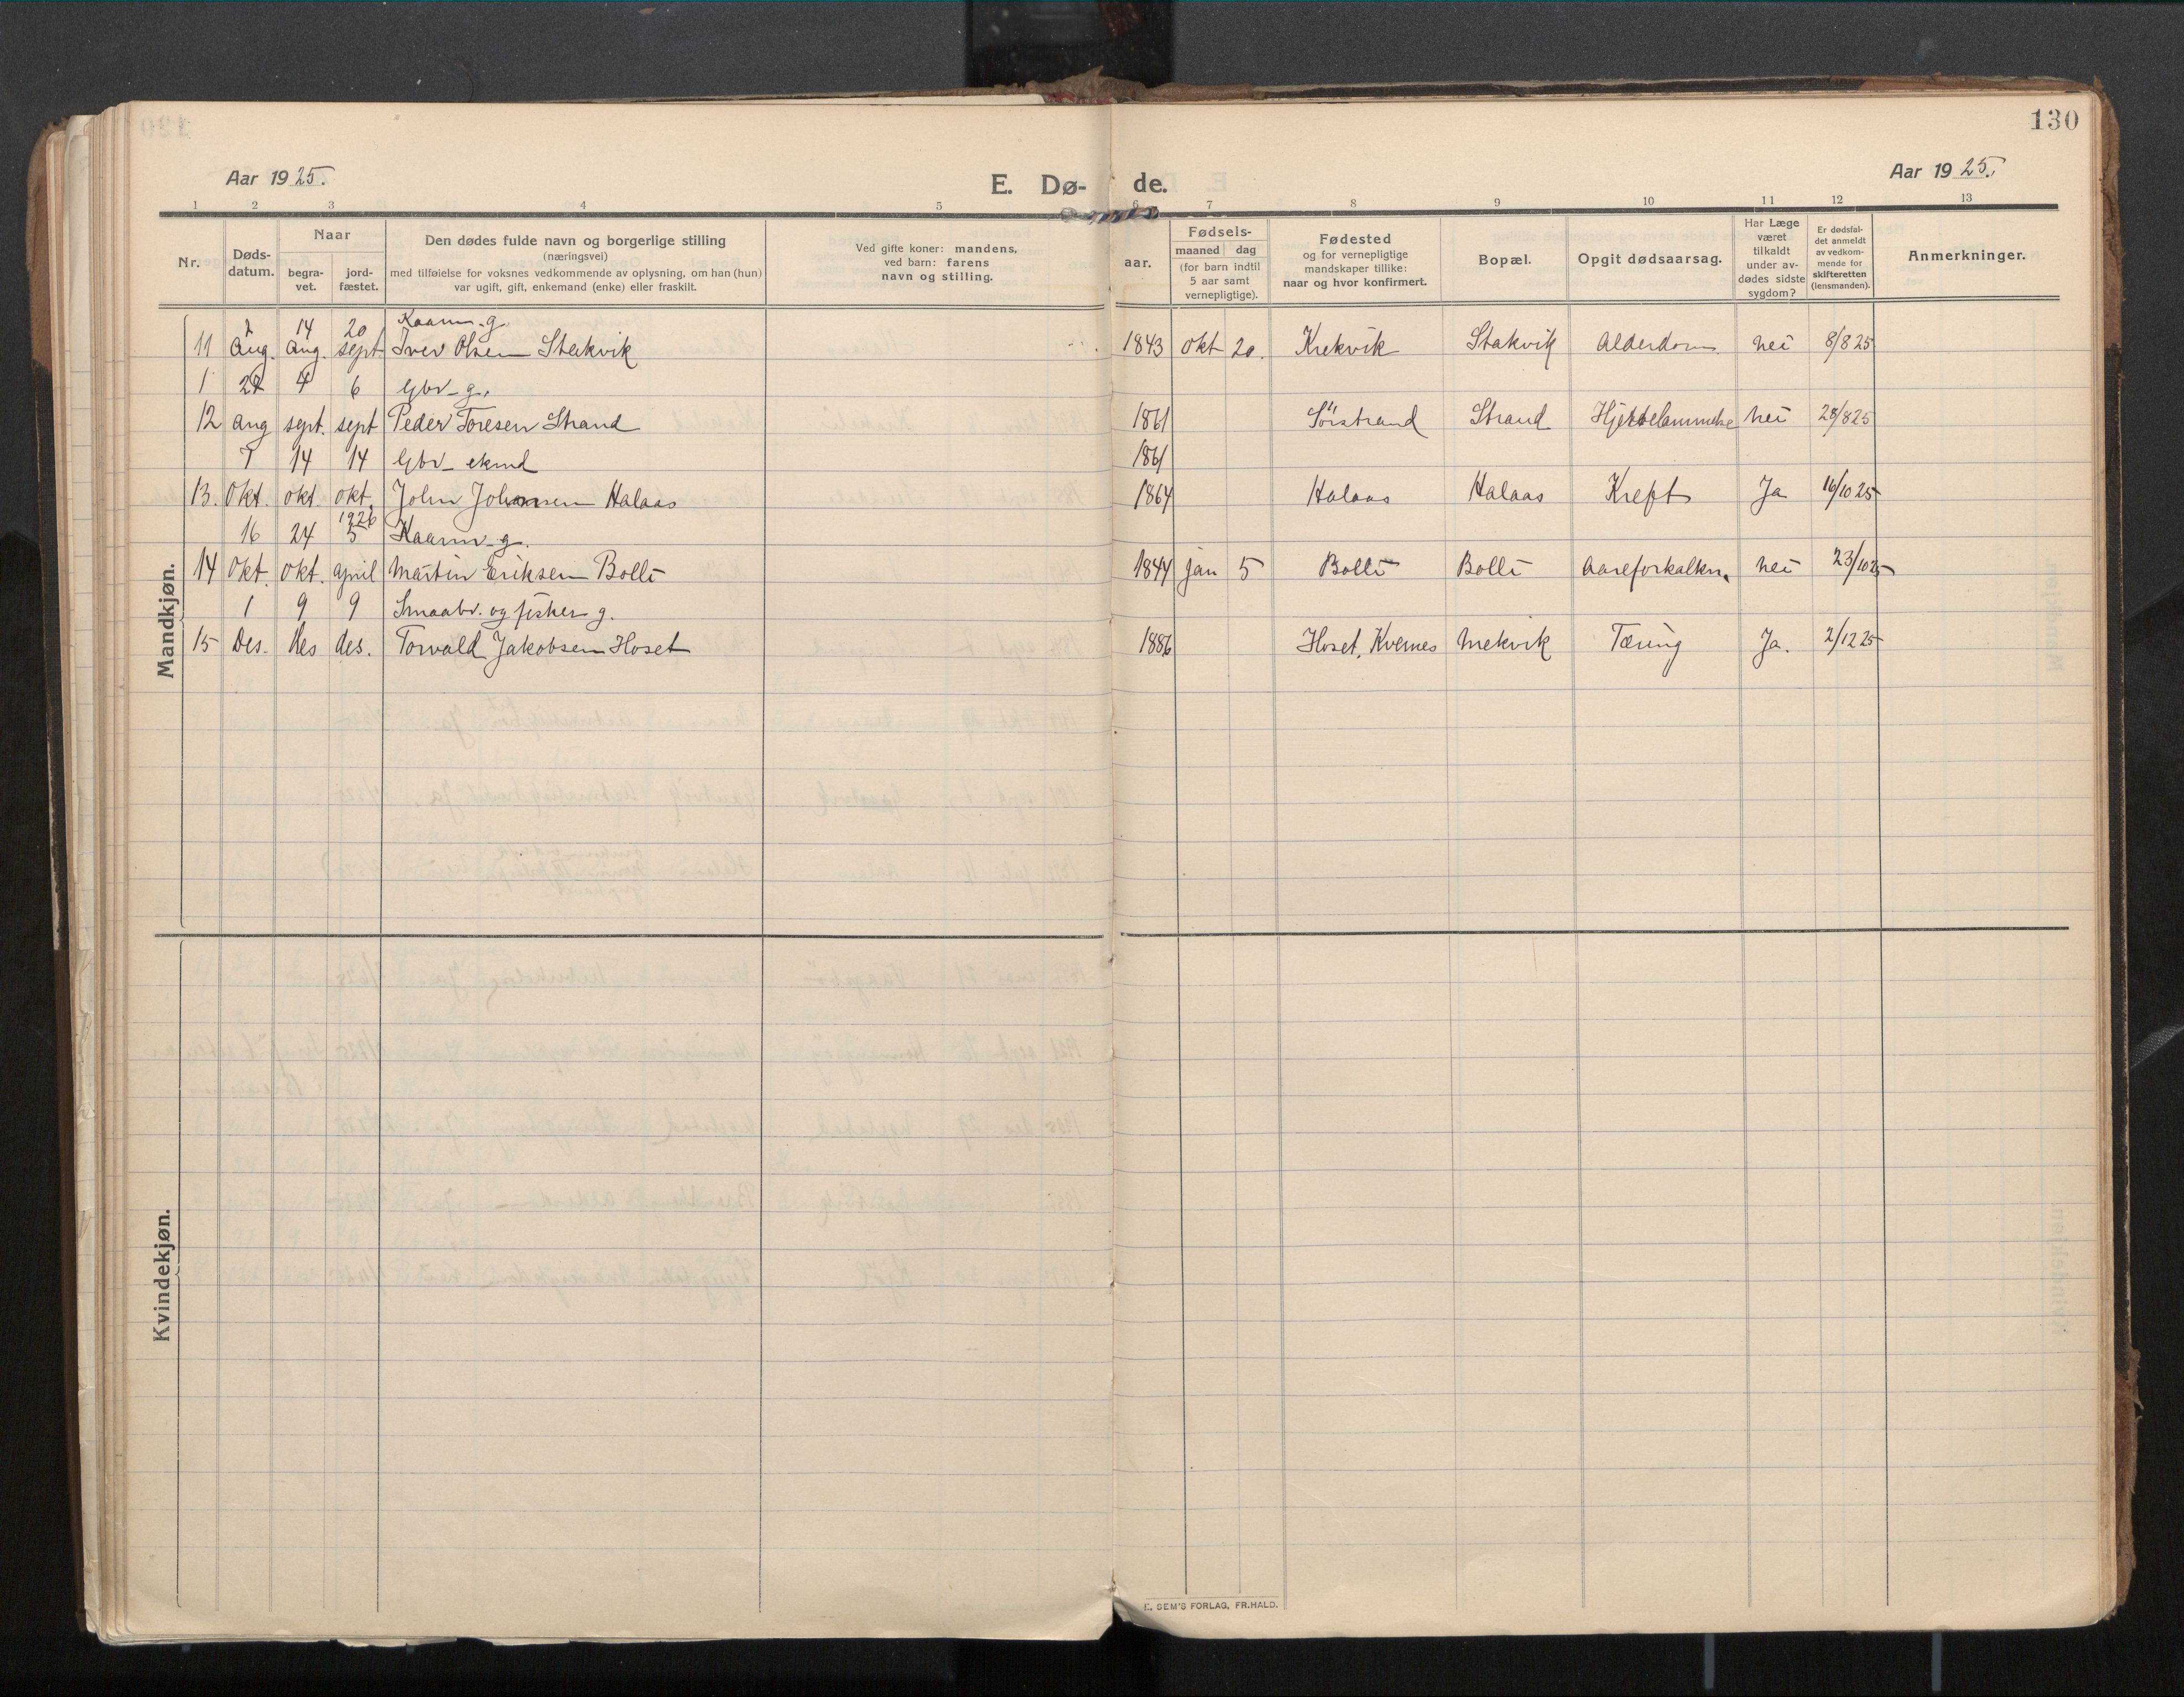 130
Aar 1925.
E. Dø- de.
Aar 1925.
1 2 3 4 5 6 7 8 9 10 11 12 13
Nr.
Døds-
datum.
Naar
begra-
vet.
jord-
fæstet.
Den dødes fulde navn og borgerlige stilling
(næringsvei)
med tilføielse for voksnes vedkommende av oplysning, om han (hun)
var ugift, gift, enkemand (enke) eller fraskilt.
Ved gifte koner: mandens,
ved barn: farens
navn og stilling.
aar.
Fødsels-
maaned dag
(for barn indtil
5 aar samt
vernepligtige).
Fødested
og for vernepligtige
mandskaper tillike:
naar og hvor konfirmert.
Bopæl.
Opgit dødsaarsag.
Har Læge
været
tilkaldt
under av-
dødes sidste
sygdom?
Er dødsfal-
det anmeldt
av vedkom-
mende for
skifteretten
(lensmanden).
Anmerkninger.
Mandkjøn.
2 14 20 Kaarm. g.
11 Aug. Aug. sept Iver Olsen Stakvik 1843 okt 20. Krekvik Stakvik Alderdom. nei 8/8 25
1 4 6 Gbr. g.
12 Aug sept. sept Peder Toresen Strand 1861 Sørstrand Strand nei 28/8 25
7 14 14 Gbr. ekmd 1861
13. Okt. okt. okt. John Johansen Halaas 1864 Halaas Halaas Kreft Ja 16/10 25
1926
16 24 5 Kaarm. g.
14 Okt. Okt. april Martin Eriksen Bolli 1844 jan 5 Bolli Bolli Aareforkalkn. nei 23/10 25
1 9 9 Smaabr. og fisker g.
15 Des. des des. Torvald Jakobsen Hoset 1886 Hoset, Kvernes Mekvik Tæring Ja. 2/12 25
Kvindekjøn.
E. SEM'S FORLAG, FR.HALD.